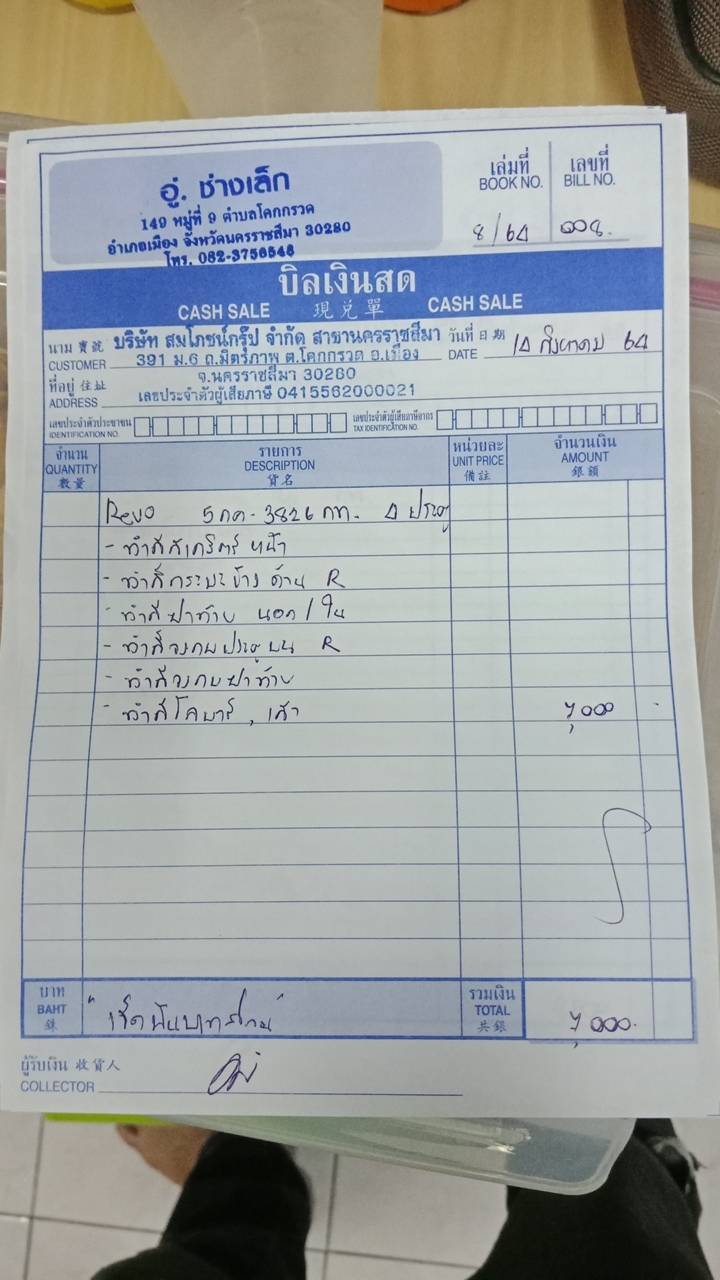 อู่. ช่างเล็ก
149 หมู่ที่ 9 ตำบลโคกกรวด
อำเภอเมือง จังหวัดนครราชสีมา 30280
โทร. 082-3756548
เล่มที่ เลขที่
BOOK NO. BILL NO.
8/64 008.
บิลเงินสด
CASH SALE 現兌單 CASH SALE
นาม 寶號 บริษัท สมโภชน์กรุ๊ป จำกัด สาขานครราชสีมา วันที่ 日期 14 สิงหาคม 64
CUSTOMER 391 ม.6 ถ.มิตรภาพ ต.โคกกรวด อ.เมือง DATE
ที่อยู่ 住址 จ.นครราชสีมา 30280
ADDRESS เลขประจำตัวผู้เสียภาษี 0415562000021
เลขประจำตัวประชาชน เลขประจำตัวผู้เสียภาษีอากร
IDENTIFICATION NO. TAX IDENTIFICATION NO.
จำนวน รายการ หน่วยละ จำนวนเงิน
QUANTITY DESCRIPTION UNIT PRICE AMOUNT
數量 貨名 備註 銀額
Revo 5กค-3826 กท. 4 ประตู
- ทำสี หน้า
- ทำสีกระบะข้างด้าน R
- ทำสีฝาท้าย นอก/ใน
- ทำสี ประตู บน R
- ทำสี ฝาท้าย
- ทำสีโลบาร์, เสา 7,000 -
บาท รวมเงิน
BAHT "เจ็ดพันบาทถ้วน" TOTAL 7,000.
銖 共銀
ผู้รับเงิน 收貨人
COLLECTOR